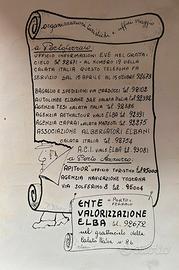 organizzazioni turistiche e uffici viaggio
a Portoferraio
UFFICIO INFORMAZIONI EVE NEL GRATTA.
CIELO tel. 92671 - AL NUMERO 17 DELLA
CALATA ITALIA QUESTO TELEFONO FA
SERVIZIO DAL 15 APRILE AL 15 OTTOBRE 92673
BAGAGLI E SPEDIZIONI VIA CARDUCCI tel. 98102
AUTOLINEE ELBANE SAE CALATA ITALIA tel. 92392
AGENZIA TESI CALATA ITALIA tel. 92386
AGENZIA AETHALTOUR VIALE ELBA tel. 92391
AGENZIA CAPRAI CALATA MAZZINI tel. 92875
ASSOCIAZIONE ALBERGATORI ELBANI
CALATA ITALIA tel. 92754
A.C.I. VIALE ELBA tel. 93081
a Porto Azzurro
APITOUR UFFICIO TURISTICO tel. 95000
AGENZIA NAVIGAZIONE TOSCANA
VIA SOLFERINO 8 tel. 95004
ENTE PORTO-
FERRAIO
VALORIZZAZIONE
ELBA tel. 92672
nel grattacielo della
Calata Italia n° 26